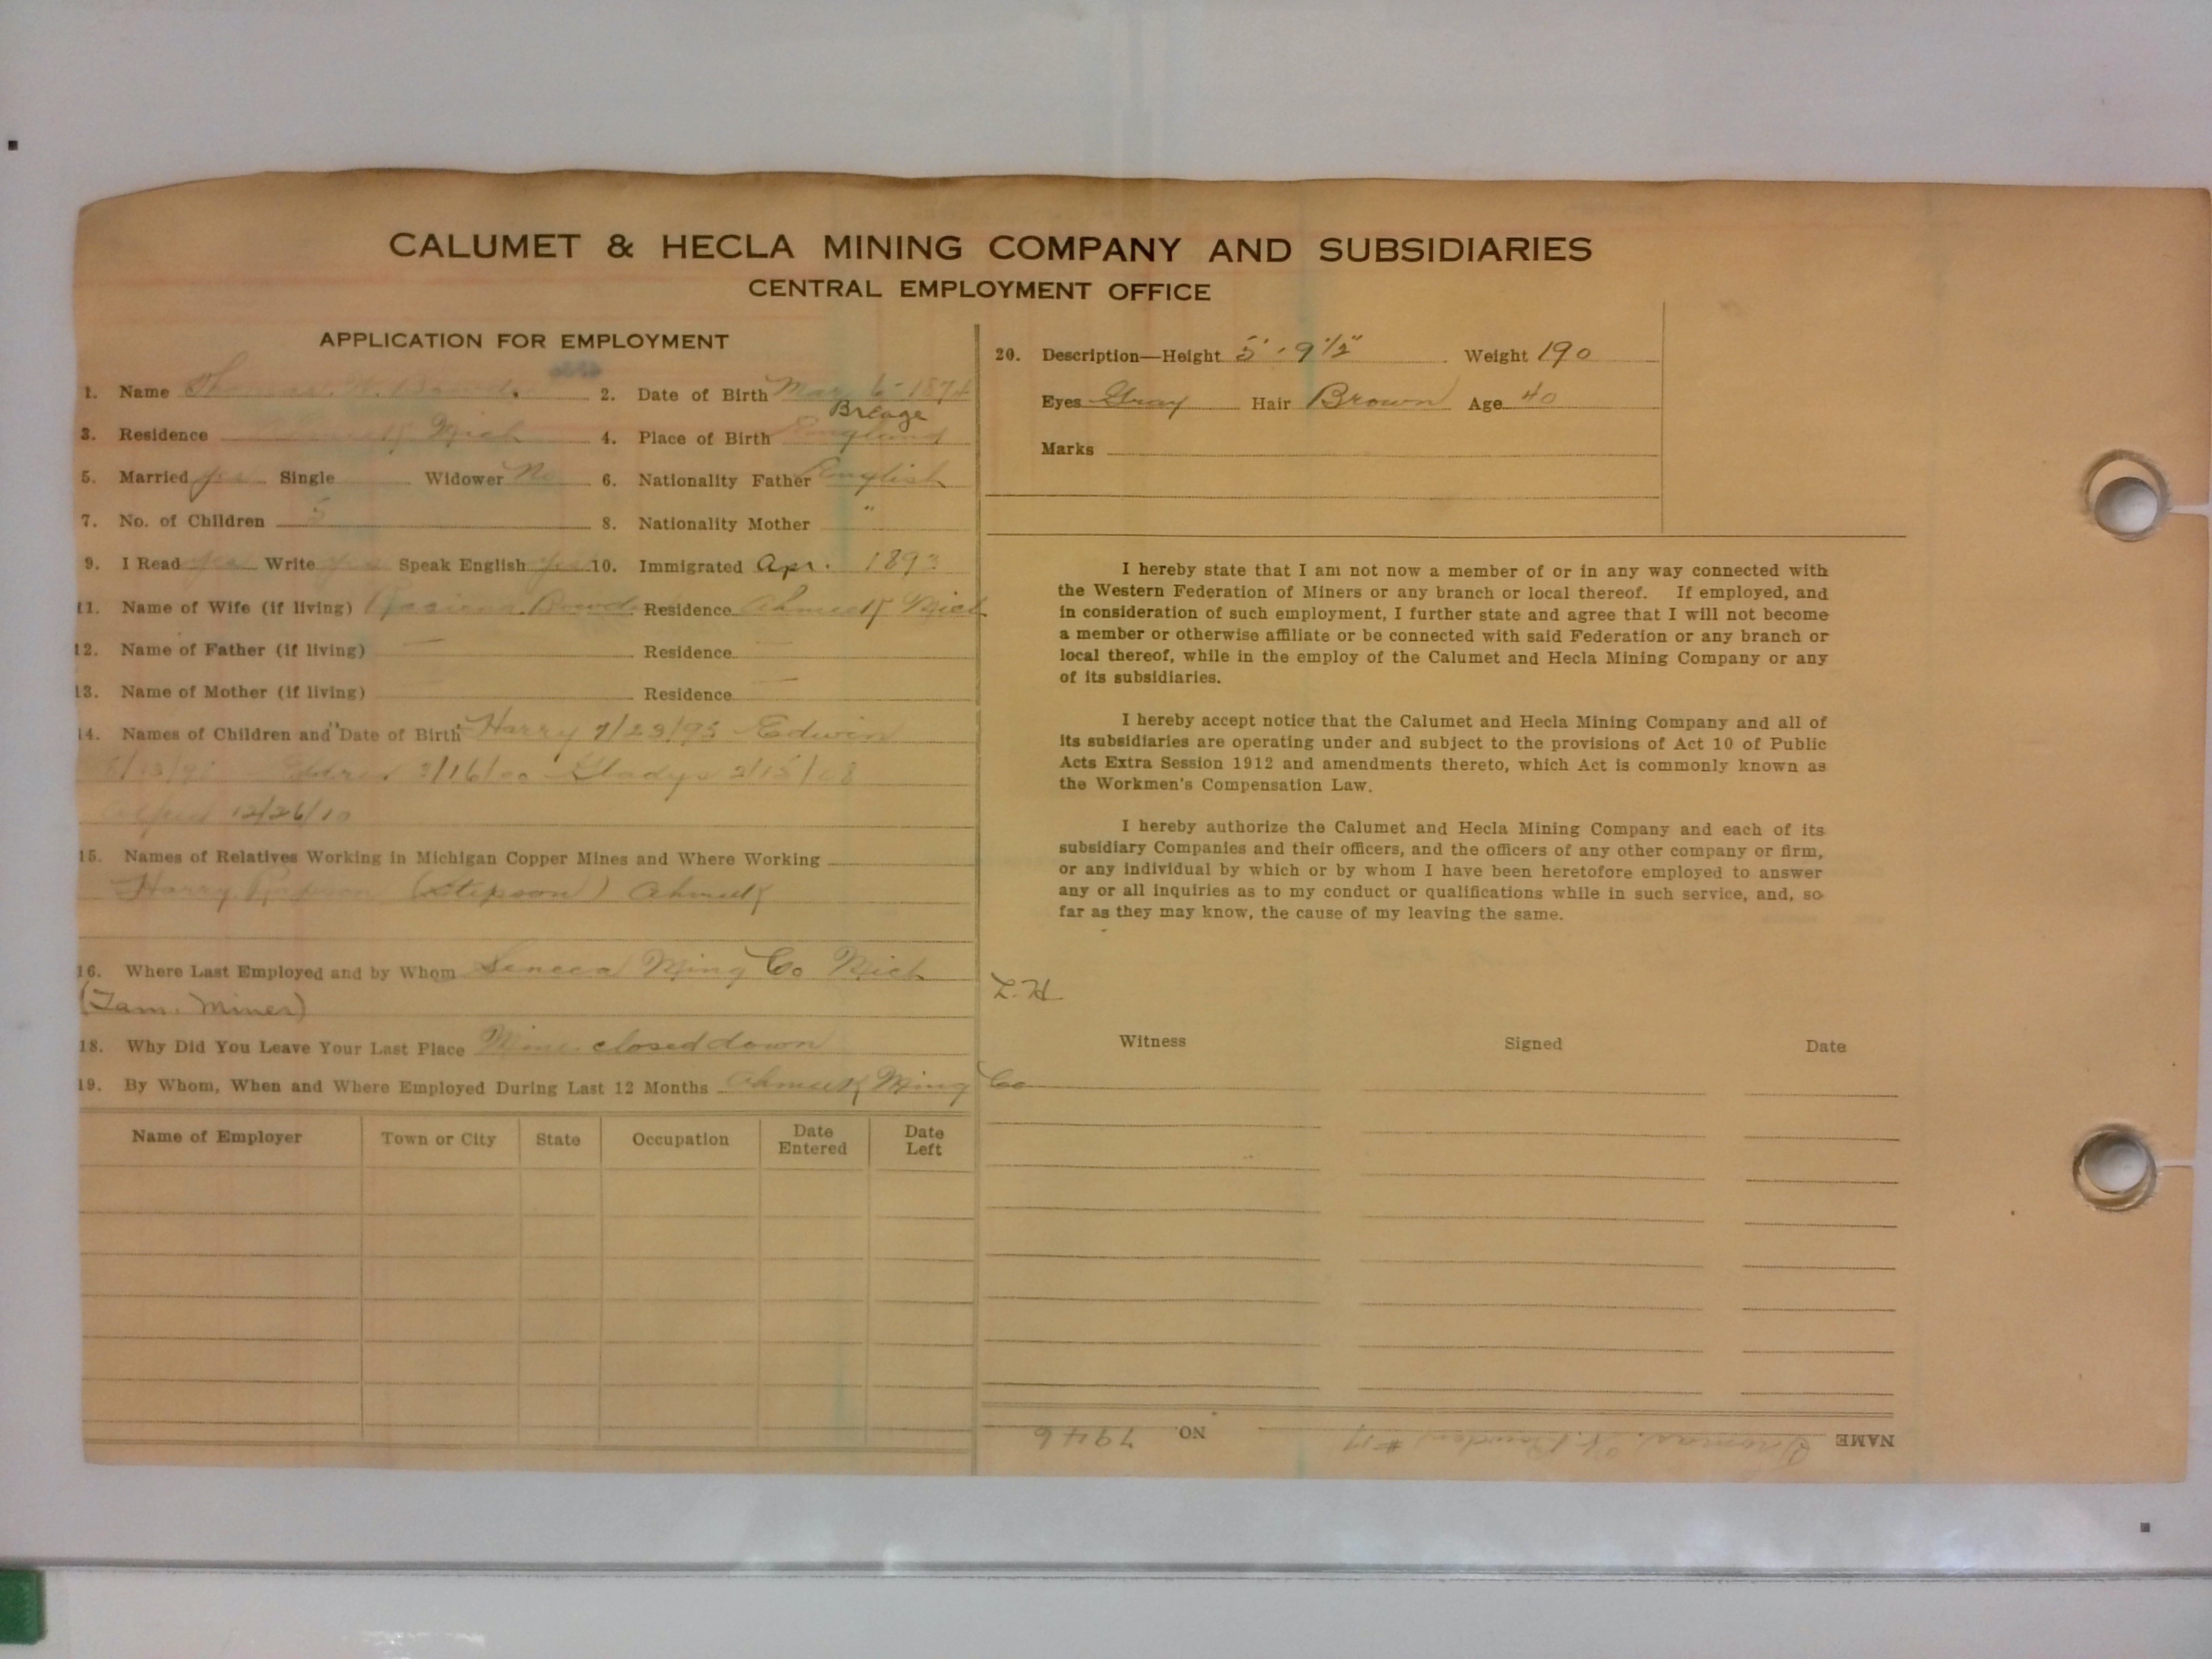 CALUMET & HECLA MINING COMPANY AND SUBSIDIARIES
CENTRAL EMPLOYMENT OFFICE
APPLICATION FOR EMPLOYMENT
1. Name Thomas. 2. Date of Birth Mar 6 - 1874
Breage
3. Residence Mich 4. Place of Birth England
5. Married yes Single Widower No 6. Nationality Father English
7. No. of Children 5 8. Nationality Mother "
9. I Read yes Write yes Speak English yes 10. Immigrated Apr. 1893
11. Name of Wife (if living) Residence Ahmeek Mich
12. Name of Father (if living) — Residence —
13. Name of Mother (if living) — Residence —
14. Names of Children and Date of Birth Harry 7/23/95 Edwin
3/16/00 Gladys 2/15/08
Alfred 12/26/10
15. Names of Relatives Working in Michigan Copper Mines and Where Working
Harry (Stepson) Ahmeek
16. Where Last Employed and by Whom Seneca Ming Co Mich
(Tam. Miner)
18. Why Did You Leave Your Last Place Mine closed down
19. By Whom, When and Where Employed During Last 12 Months Ahmeek Ming Co
Name of Employer Town or City State Occupation Date Entered Date Left
20. Description—Height 5' - 9 1/2" Weight 190
Eyes Gray Hair Brown Age 40
Marks
I hereby state that I am not now a member of or in any way connected with
the Western Federation of Miners or any branch or local thereof. If employed, and
in consideration of such employment, I further state and agree that I will not become
a member or otherwise affiliate or be connected with said Federation or any branch or
local thereof, while in the employ of the Calumet and Hecla Mining Company or any
of its subsidiaries.
I hereby accept notice that the Calumet and Hecla Mining Company and all of
its subsidiaries are operating under and subject to the provisions of Act 10 of Public
Acts Extra Session 1912 and amendments thereto, which Act is commonly known as
the Workmen's Compensation Law.
I hereby authorize the Calumet and Hecla Mining Company and each of its
subsidiary Companies and their officers, and the officers of any other company or firm,
or any individual by which or by whom I have been heretofore employed to answer
any or all inquiries as to my conduct or qualifications while in such service, and, so
far as they may know, the cause of my leaving the same.
L.H
Witness Signed Date
NAME Thomas. Bowden #17 NO. 7946